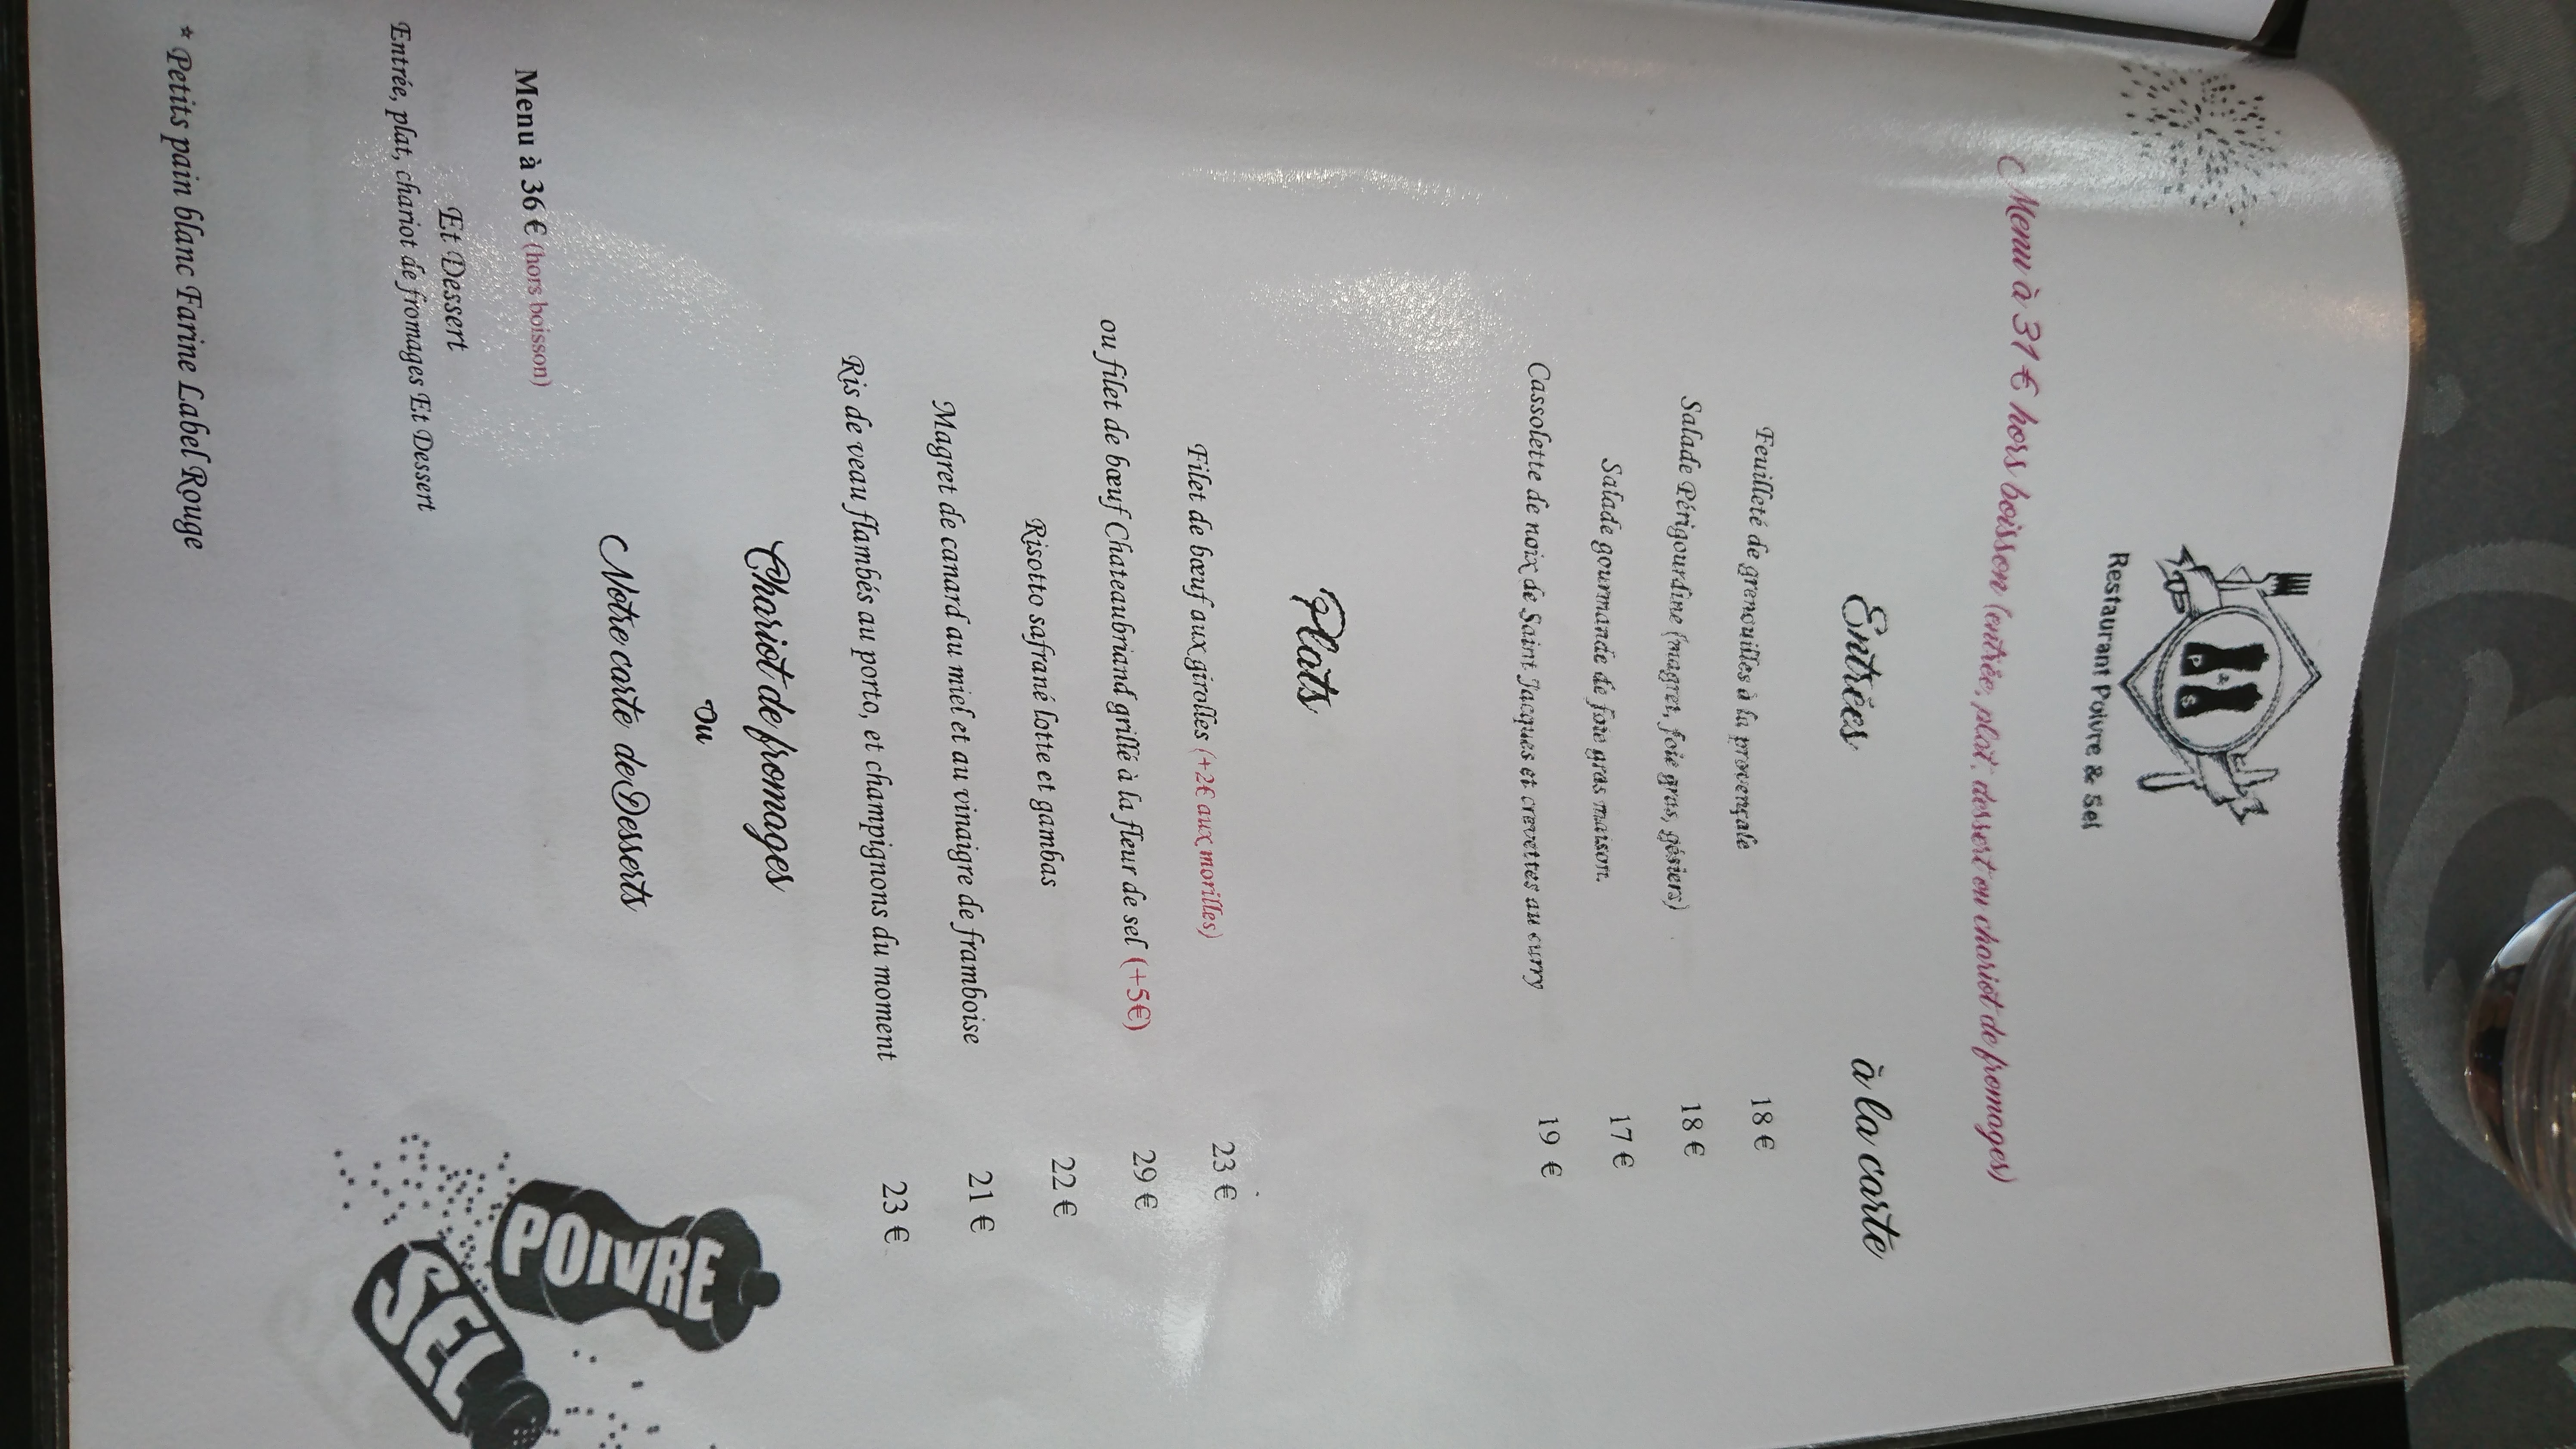 P & S
Restaurant Poivre & Sel
Menu à 31 € hors boisson (entrée, plat, dessert ou chariot de fromages)
Entrées à la carte
Feuilleté de grenouilles à la provençale 18 €
Salade Périgourdine (magret, foie gras, gésiers) 18 €
Salade gourmande de foie gras maison. 17 €
Cassolette de noix de Saint Jacques et crevettes au curry 19 €
Plats
Filet de bœuf aux girolles (+2€ aux morilles) 23 €
ou filet de bœuf Chateaubriand grillé à la fleur de sel (+5€) 29 €
Risotto safrané lotte et gambas 22 €
Magret de canard au miel et au vinaigre de framboise 21 €
Ris de veau flambés au porto, et champignons du moment 23 €
Chariot de fromages
Ou
Notre carte de Desserts
Menu à 36 € (hors boisson)
Et Dessert
Entrée, plat, chariot de fromages Et Dessert
POIVRE
SEL
* Petits pain blanc Farine Label Rouge